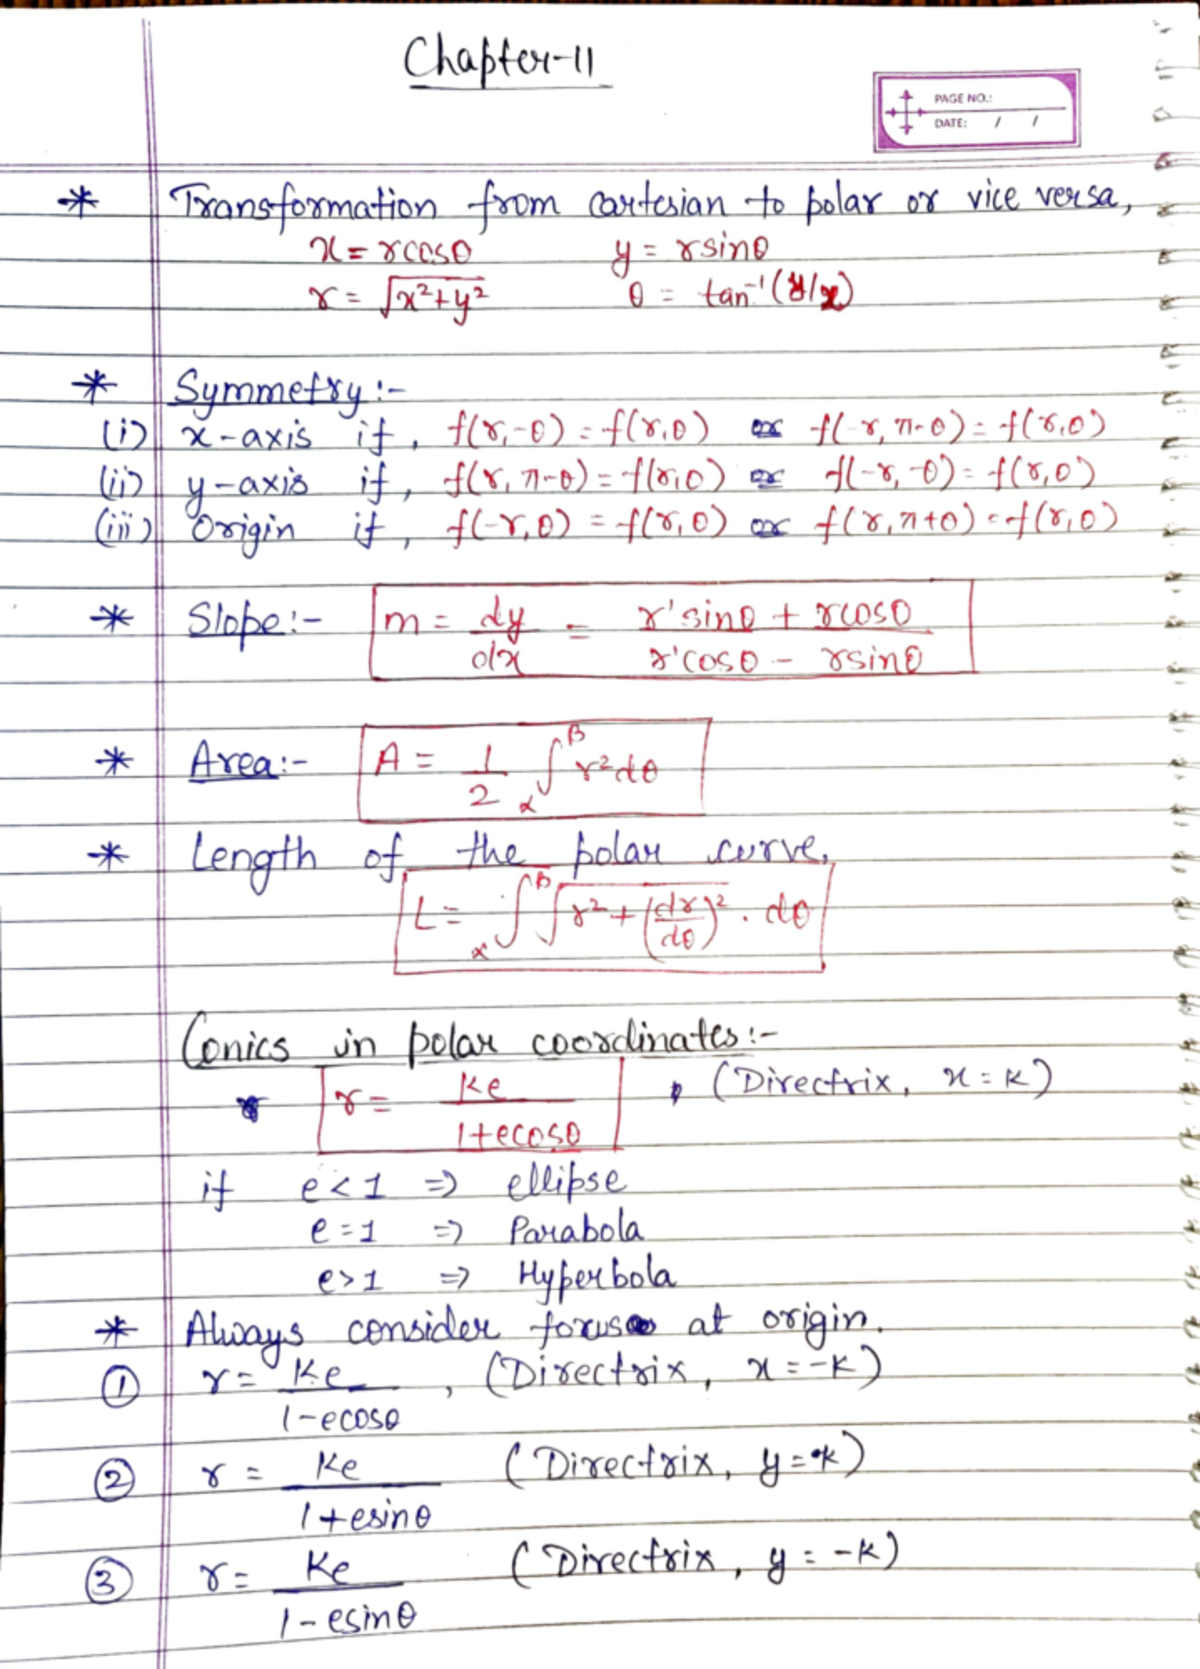 Chapter-11
PAGE NO.:
DATE: / /
* Transformation from cartesian to polar or vice versa,
x = rcosθ y = rsinθ
r = √x²+y² θ = tan⁻¹(y/x)
* Symmetry:-
(i) x-axis if, f(r,-θ) = f(r,θ) or f(-r, π-θ) = f(r,θ)
(ii) y-axis if, f(r, π-θ) = f(r,θ) or f(-r, -θ) = f(r,θ)
(iii) Origin if, f(-r,θ) = f(r,θ) or f(r,π+θ) = f(r,θ)
* Slope:- m = dy/dx = r'sinθ + rcosθ / r'cosθ - rsinθ
* Area:- A = 1/2 ∫αβ r²dθ
* Length of the polar curve,
L = ∫αβ √r²+(dr/dθ)² . dθ
Conics in polar coordinates:-
r = Ke / 1+ecosθ (Directrix, x = K)
if e < 1 => ellipse
e = 1 => Parabola
e > 1 => Hyperbola
* Always consider focus at origin.
① r = Ke / 1-ecosθ , (Directrix, x = -K)
② r = Ke / 1+esinθ (Directrix, y = K)
③ r = Ke / 1-esinθ (Directrix, y = -K)